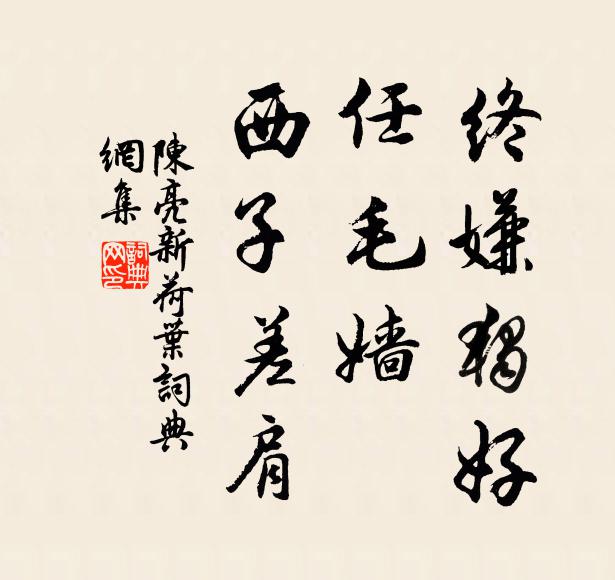 終嫌獨好
任毛嬙
西子差肩
陳亮新荷葉詞典
網集
詞典
网印